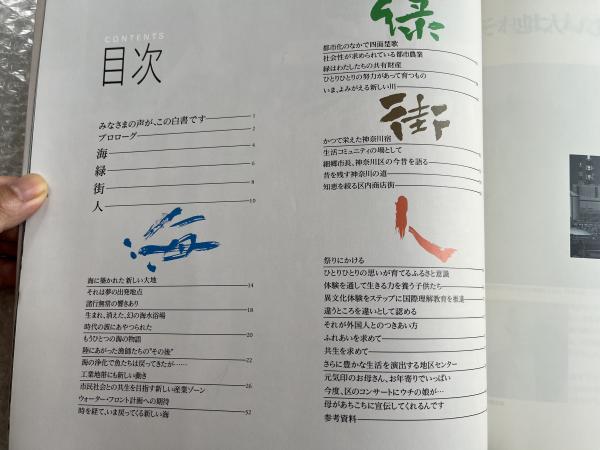 CONTENTS
目次
みなさまの声が、この白書です 1
プロローグ 2
海 4
緑 6
街 8
人 10
海
海に築かれた 新しい大地
それは夢の出発地点 14
諸行無常の響きあり
生まれ、消えた、幻の海水浴場 18
時代の波にあやつられた
もうひとつの海の物語 20
陸にあがった漁師たちの"その後"
海の浄化で魚たちは戻ってきたが…… 22
工業地帯にも新しい動き
市民社会との共生を目指す新しい産業ゾーン 26
ウォーター・フロント計画への期待
時を経て、いま戻ってくる新しい海 52
緑
都市化のなかで四面楚歌
社会性が求められている都市農業
緑はわたしたちの共有財産
ひとりひとりの努力があって育つもの
いま、よみがえる新しい川
街
かつて栄えた神奈川宿
生活コミュニティの場として
細郷市長、神奈川区の今昔を語る
昔を残す神奈川の道
知恵を絞る区内商店街
人
祭りにかける
ひとりひとりの思いが育てるふるさと意識
体験を通して生きる力を養う子供たち
異文化体験をステップに国際理解教育を推進
違うところを違いとして認める
それが外国人とのつきあい方
ふれあいを求めて
共生を求めて
さらに豊かな生活を演出する地区センター
元気印のお母さん、お年寄りでいっぱい
今度、区のコンサートにウチの娘が…
母があちこちに宣伝してくれるんです
参考資料